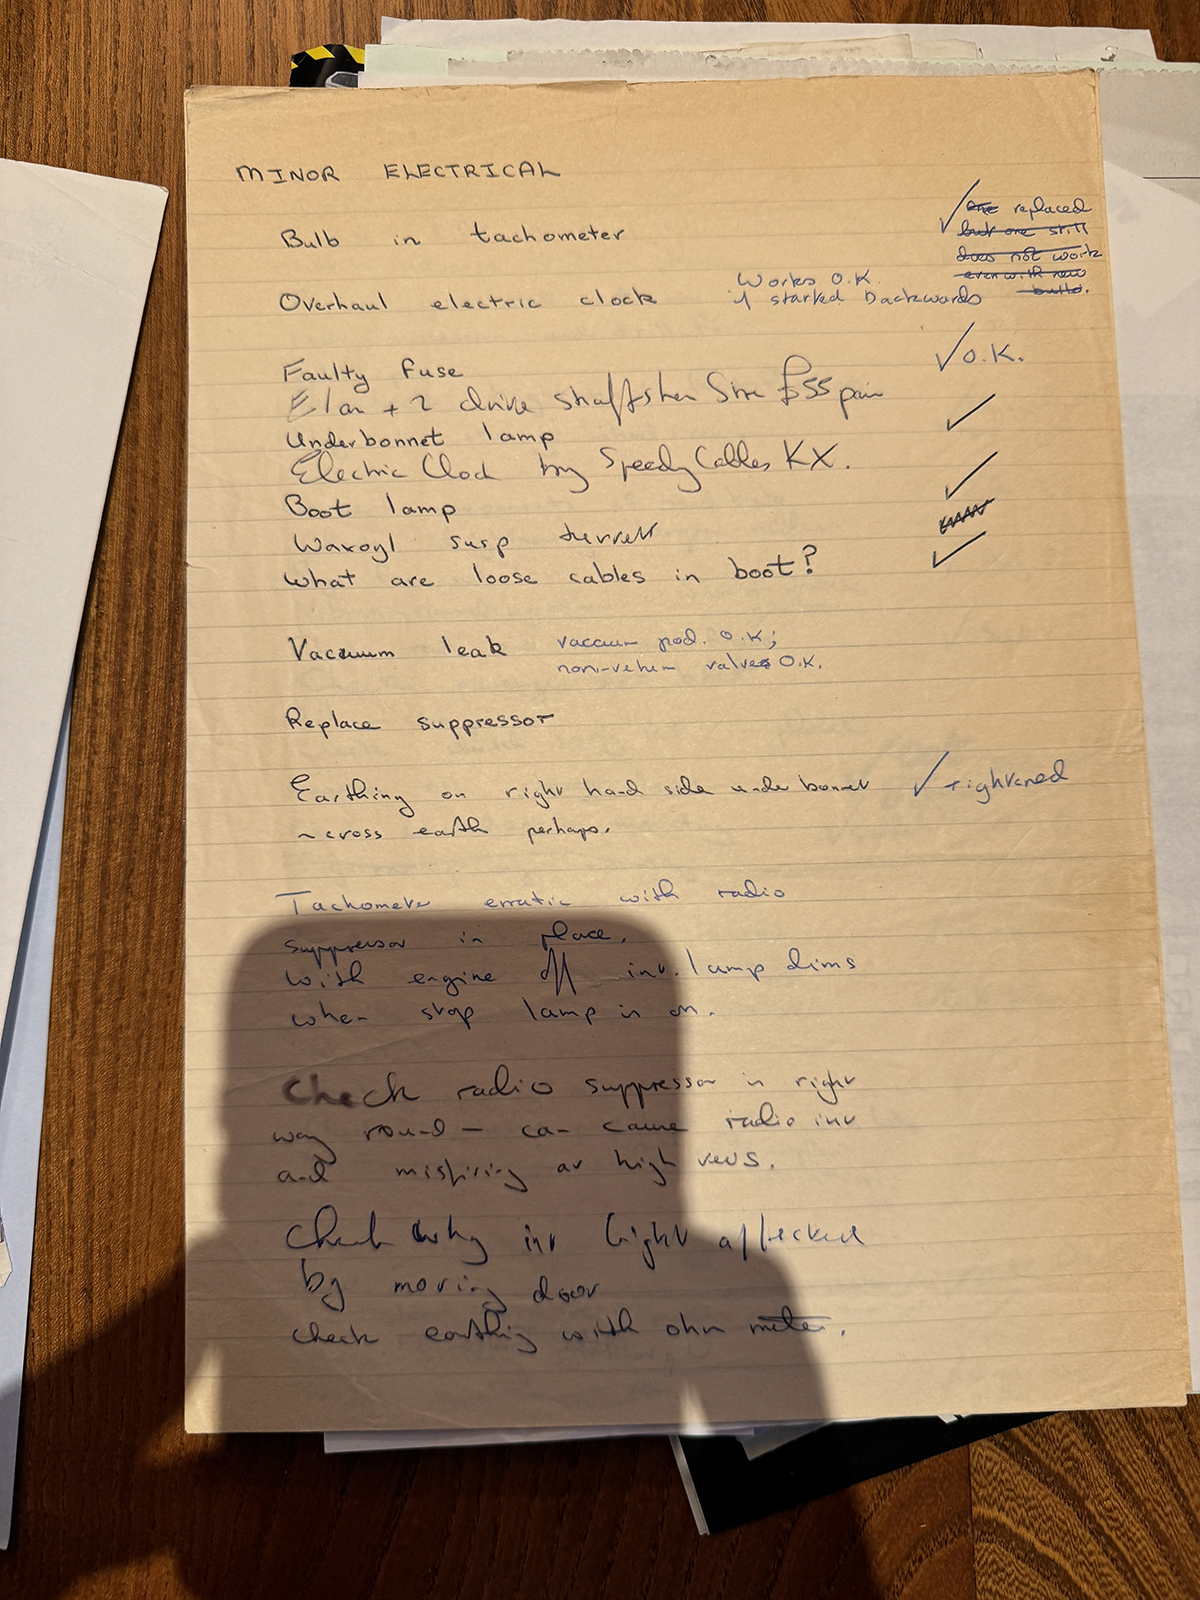 MINOR ELECTRICAL
Bulb in tachometer ✓ one replaced
but one still
does not work
even with new
bulb.
Overhaul electric clock Works O.K.
if started backwards
Faulty fuse ✓ O.K.
Elan + 2 drive shafts £55 pair
Underbonnet lamp ✓
Electric Clock by Speedy Cables KX.
Boot lamp ✓
Waxoyl susp turrett
What are loose cables in boot? ✓
Vacuum leak vaccum pod. O.K;
non-return valves O.K.
Replace suppressor
Earthing on right hand side under bonnet ✓ tightened
~ cross earth perhaps.
Tachometer erratic with radio
suppressor in place.
With engine off inv. lamp dims
when stop lamp is on.
Check radio suppressor in right
way round — can cause radio inv
and misfiring at high revs.
Check why inv light affected
by moving door
check earthing with ohm meter.